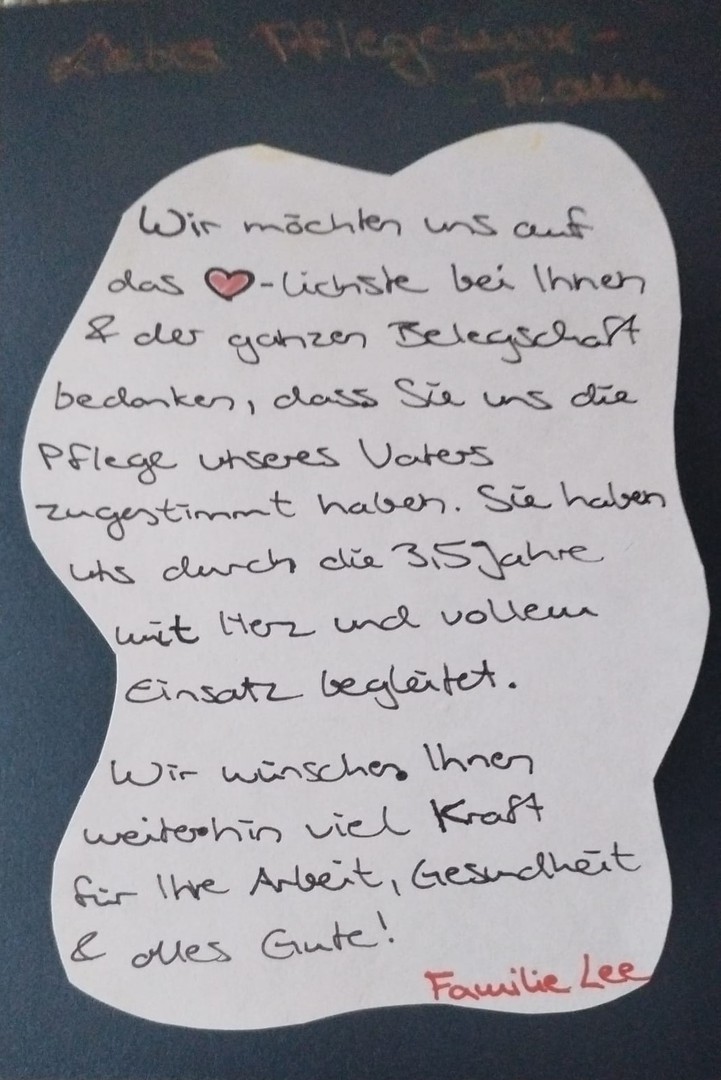 Liebes Pflegemax-
Team
Wir möchten uns auf
das ♥-lichste bei Ihnen
& der ganzen Belegschaft
bedanken, dass Sie uns die
Pflege unseres Vaters
zugestimmt haben. Sie haben
uns durch die 3,5 Jahre
mit Herz und vollem
Einsatz begleitet.
Wir wünschen Ihnen
weiterhin viel Kraft
für Ihre Arbeit, Gesundheit
& alles Gute!
Familie Lee